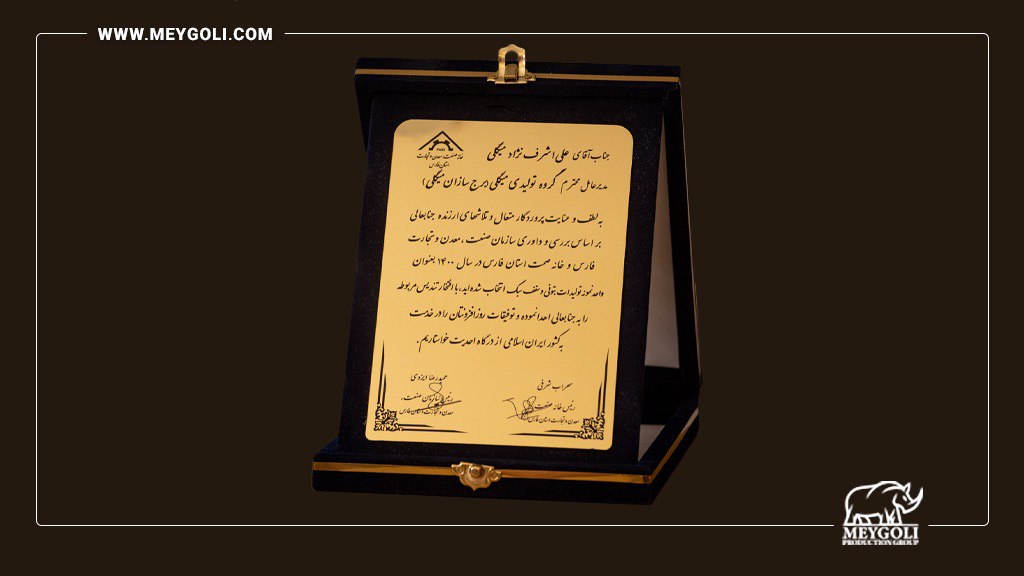 WWW.MEYGOLI.COM
خانه صنعت، معدن و تجارت
استان فارس
جناب آقای علی اشرف نژاد میگلی
مدیرعامل محترم گروه تولیدی میگلی (برج سازان میگلی)
به لطف و عنایت پروردگار متعال و تلاشهای ارزنده جنابعالی
بر اساس بررسی و داوری سازمان صنعت، معدن و تجارت
فارس و خانه صمت استان فارس در سال ۱۴۰۰ بعنوان
واحد نمونه تولیدات بتونی و سقف سبک انتخاب شده اید، با افتخار تندیس مربوطه
را به جنابعالی اهدا نموده و توفیقات روزافزونتان را در خدمت
به کشور ایران اسلامی از درگاه احدیت خواستاریم.
سهراب شرفی
رئیس خانه صنعت
معدن و تجارت استان فارس
حمیدرضا ایزدی
رئیس سازمان صنعت،
معدن و تجارت استان فارس
MEYGOLI
PRODUCTION GROUP